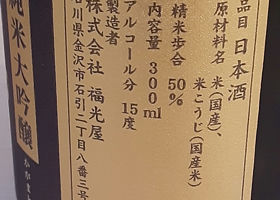 品目 日本酒
原材料名 米(国産)、
米こうじ(国産米)
精米歩合 50%
内容量 300ml
アルコール分 15度
製造者
株式会社 福光屋
石川県金沢市石引二丁目八番三号
純米大吟醸